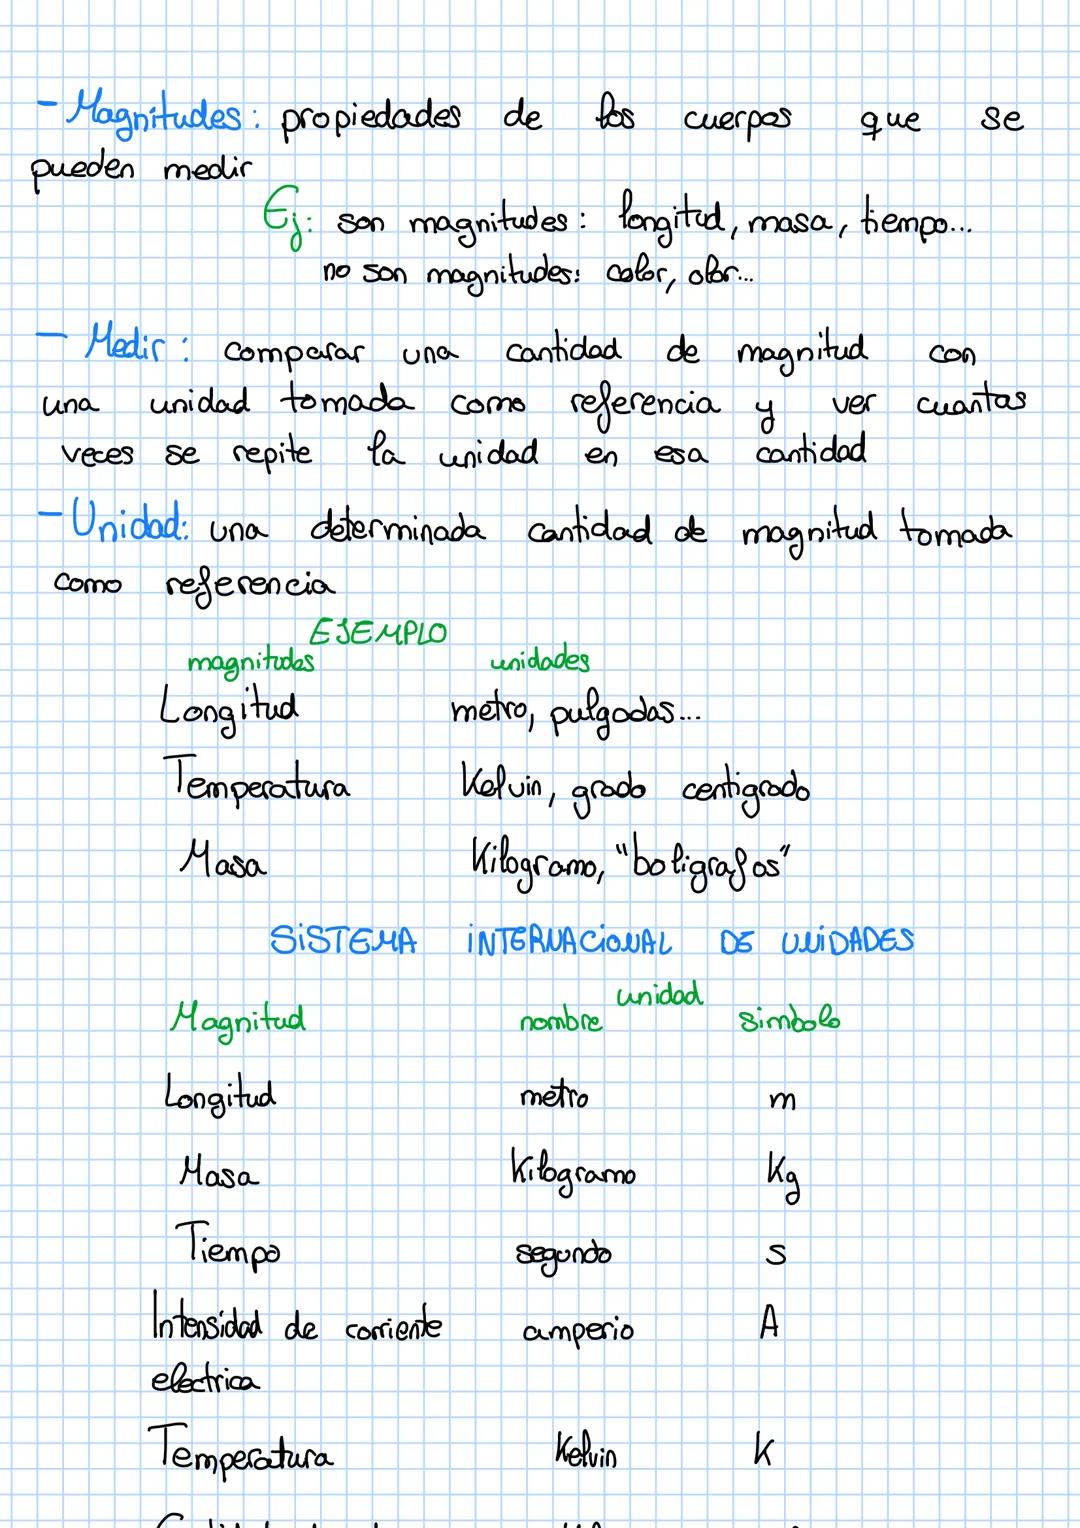 - Magnitudes: propiedades de los cuerpos que se
pueden medir
Ej: son magnitudes: longitud, masa, tiempo...
no son magnitudes: color, olor...
- Medir: comparar una cantidad de magnitud con
una unidad tomada como referencia y ver cuantas
veces se repite la unidad en esa cantidad
- Unidad: una determinada cantidad de magnitud tomada
como referencia
EJEMPLO
magnitudes unidades
Longitud metro, pulgadas...
Temperatura Kelvin, grado centigrado
Masa Kilogramo, "boligrafos"
SISTEMA INTERNACIONAL DE UNIDADES
unidad
Magnitud nombre simbolo
Longitud metro m
Masa Kilogramo Kg
Tiempo segundo s
Intensidad de corriente amperio A
electrica
Temperatura Kelvin K